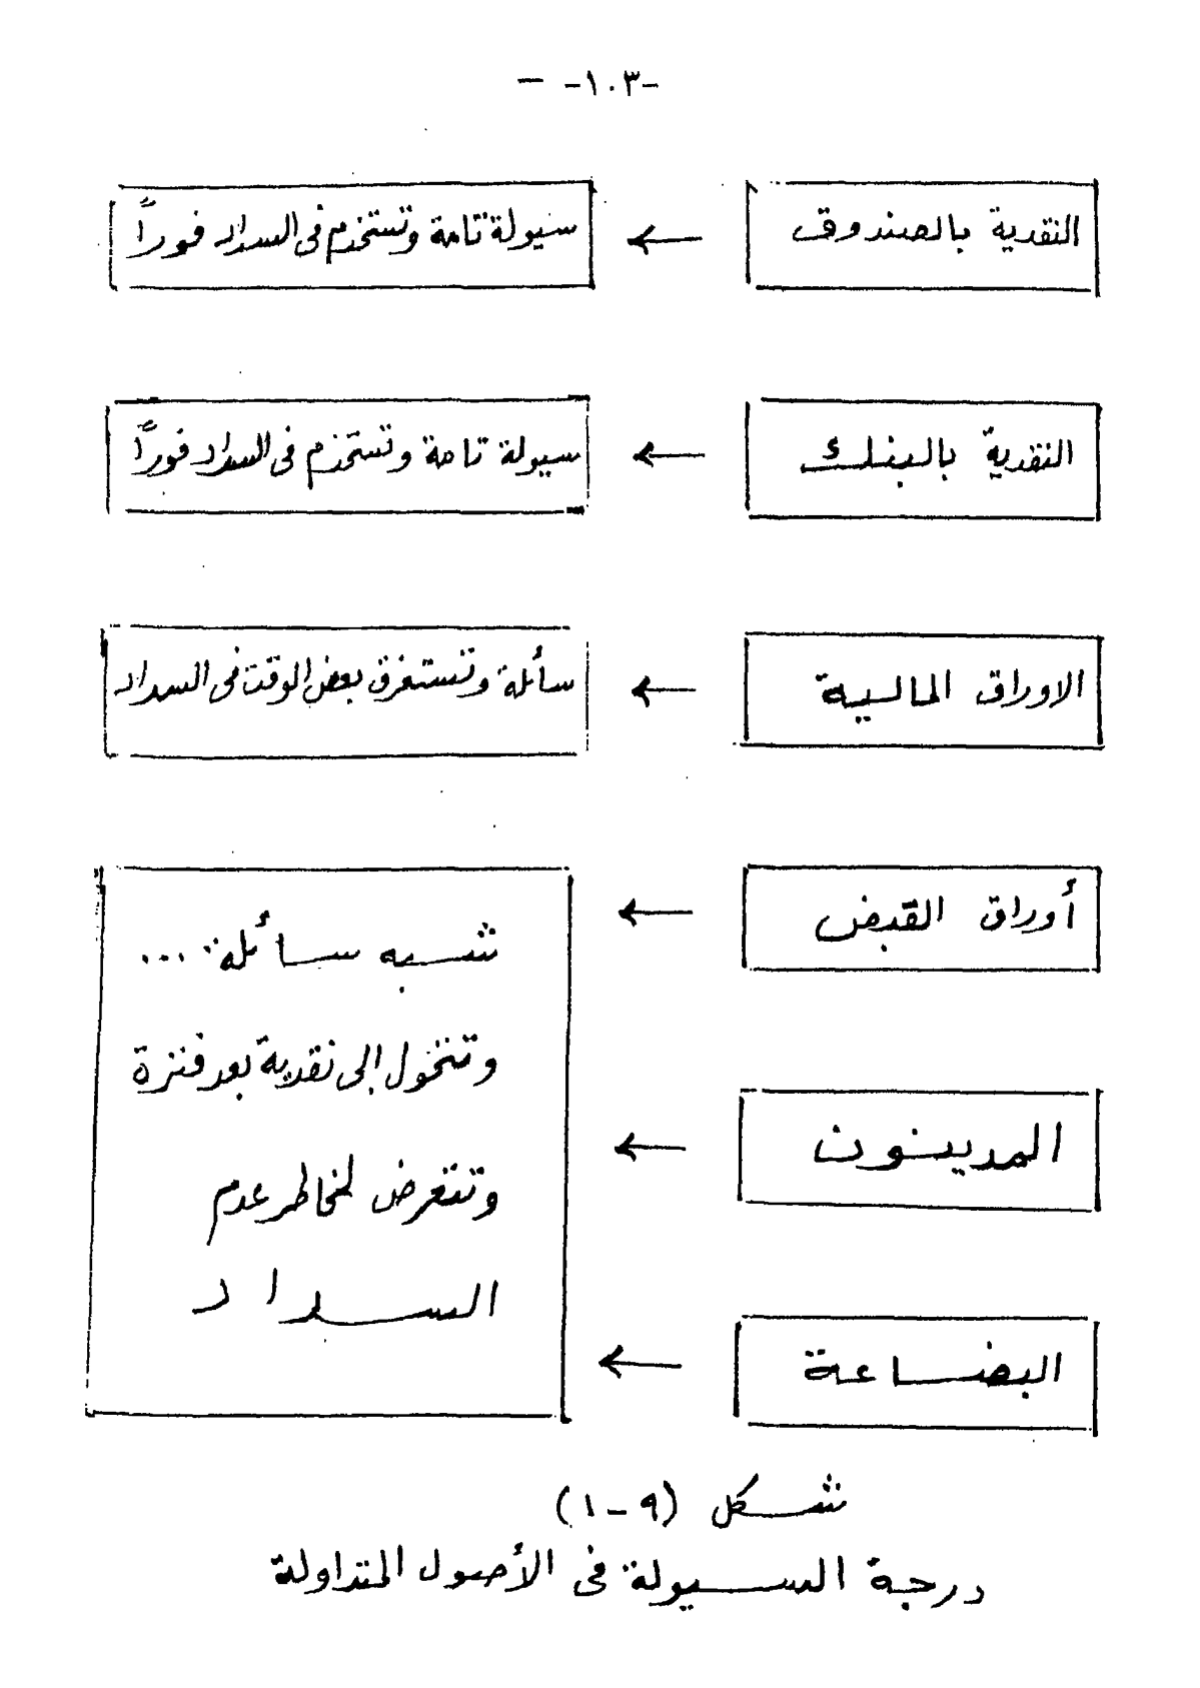 -١٠٣- –
النقدية بالصندوق ← سيولة تامة وتستخدم فى السداد فوراً
النقدية بالبنك ← سيولة تامة وتستخدم فى السداد فوراً
الاوراق المالية ← سائلة وتستغرق بعض الوقت فى السداد
أوراق القبض ←
المدينون ←
البضاعة ←
شبه سائلة ...
وتتحول إلى نقدية بعد فترة
وتتعرض لمخاطر عدم
السداد
شكل (٩-١)
درجة السيولة فى الأصول المتداولة